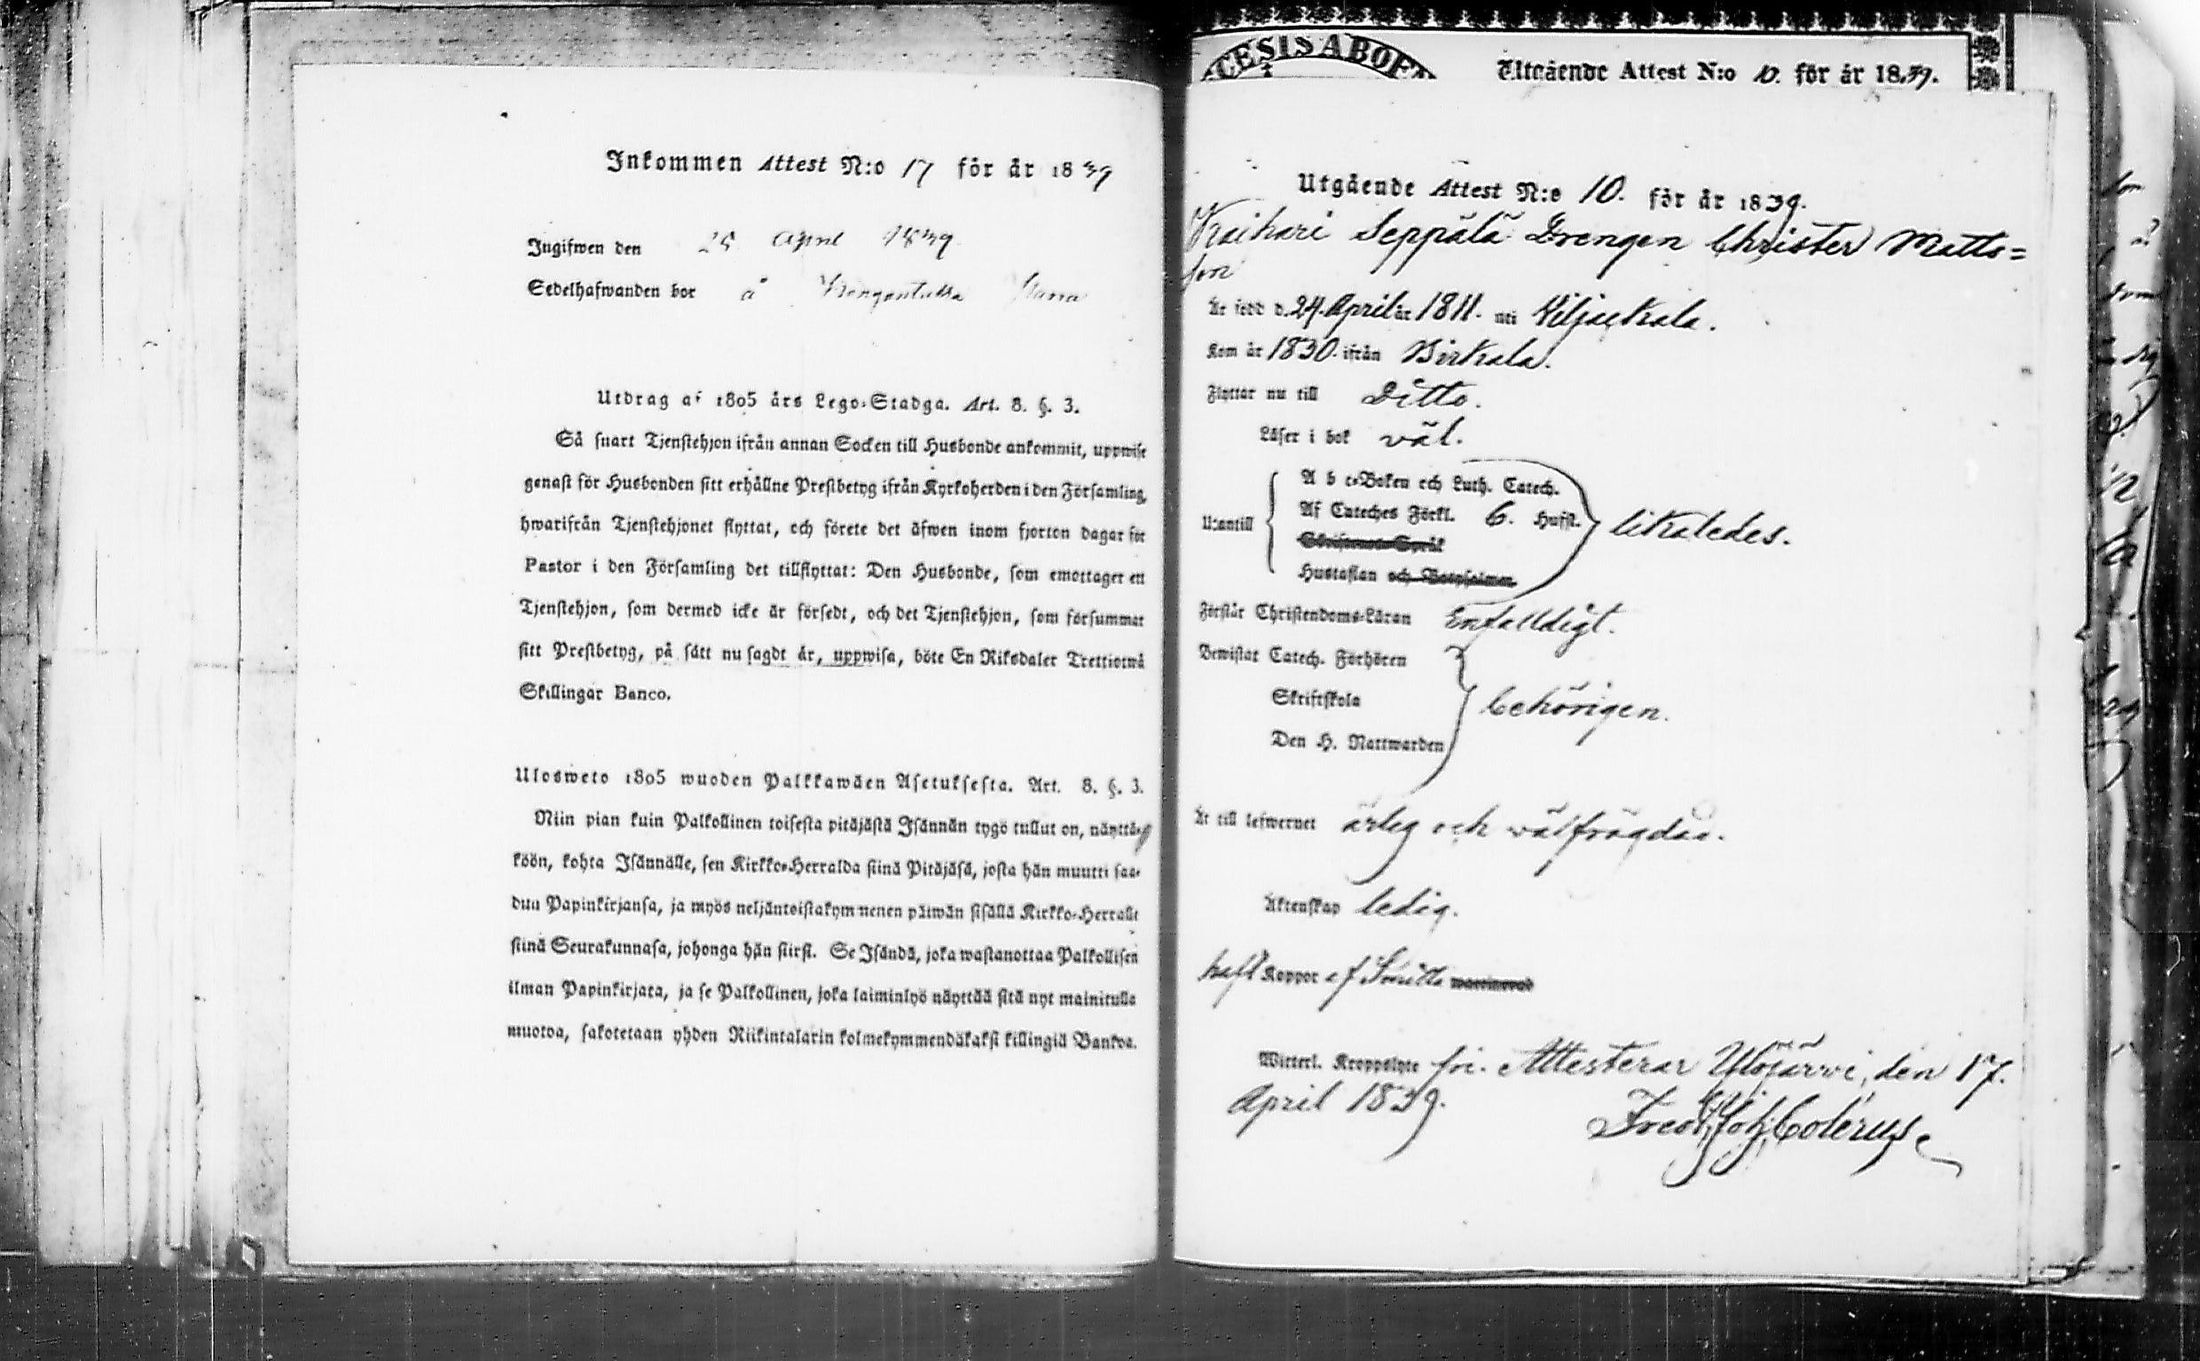 Inkommen Attest N:o 17 för år 1839
Ingifwen den 28 April 1839
Sedelhafwanden bor å
Utdrag af 1805 års Lego-Stadga. Art. 8. §. 3.
Så snart Tjenstehjon ifrån annan Socken till Husbonde ankommit, uppwise
genast för Husbonden sitt erhållne Prestbetyg ifrån Kyrkoherden i den Församling,
hwarifrån Tjenstehjonet flyttat, och förete det äfwen inom fjorton dagar för
Pastor i den Församling det tillflyttat: Den Husbonde, som emottager ett
Tjenstehjon, som dermed icke är försedt, och det Tjenstehjon, som försummar
sitt Prestbetyg, på sätt nu sagdt är, uppwisa, böte En Riksdaler Trettiotwå
Skillingar Banco.
Ulosweto 1805 wuoden Palkkawäen Asetuksesta. Art. 8. §. 3.
Niin pian kuin Palkollinen toisesta pitäjästä Isännän tygö tullut on, näyttä-
köön, kohta Isännälle, sen Kirkko-Herralda siinä Pitäjäsä, josta hän muutti saa-
dun Papinkirjansa, ja myös neljäntoistakymmenen päiwän sisällä Kirkko-Herralle
siinä Seurakunnasa, johonga hän siirsi. Se Isändä, joka wastanottaa Palkollisen
ilman Papinkirjata, ja se Palkollinen, joka laiminlyö näyttää sitä nyt mainitulla
muotoa, sakotetaan yhden Riikintalarin kolmekymmendäkaksi killingiä Bankoa.
CESIS ABOE
Utgående Attest N:o 10. för år 1839.
Utgående Attest N:o 10. för år 1839.
Kaihari Seppälä Drengen Christer Matts=
son
Är född d. 24. April år 1811. uti Viljackala.
Kom år 1830. ifrån Birkala.
Flyttar nu till Ditto.
Läser i bok väl.
Utantill
A b c-Boken och Luth. Catech.
Af Cateches Förkl. 6. Hufst.
Skriftenes Språk
Hustaflan och Botpsalmer
likaledes.
Förstår Christendoms-Läran Enfalldigt.
Bewistat Catech. Förhören
Skriftskola
Den H. Nattwarden
behörigen.
Är till lefwernet ärlig och välfrägdad.
Äktenskap ledig.
haft Koppor af Smitta
Witterl. Kroppslyte fri. Attesterar Ylöjärvi, den 17.
April 1839.